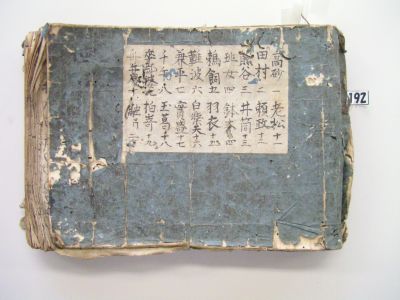 高砂 一 老松 十一
田村 二 頼政 十二
熊谷 三 井筒 十三
班女 四 鉢木 十四
鵜飼 五 羽衣 十五
難波 六 白楽天 十六
兼平 七 實盛 十七
千手 八 玉葛 十八
九 柏崎 十九
十 融 二十
192